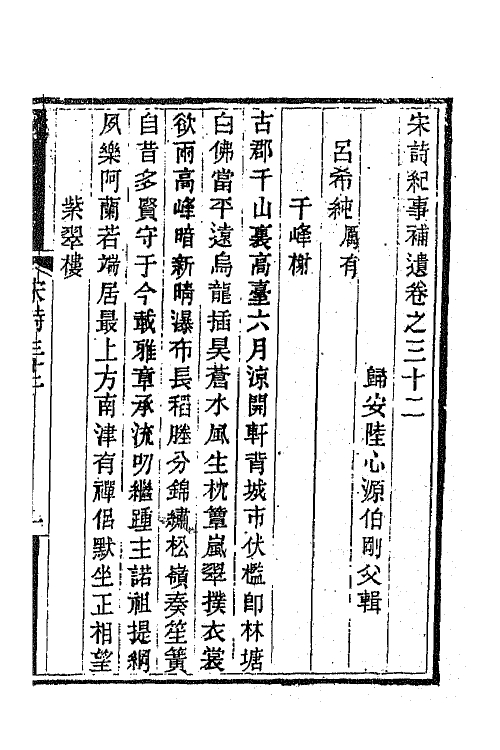 宋詩紀事補遺卷之三十二
歸安陸心源伯剛父輯
呂希純厲有
千峰榭
古郡千山裏高臺六月涼開軒背城市伏檻卽林塘
白佛當平遠烏龍插昊蒼水風生枕簟嵐翠撲衣裳
欲雨高峰暗新晴瀑布長稻塍分錦繡松嶺奏笙簧
自昔多賢守于今載雅章承流叨繼踵主諾祖提綱
夙樂阿蘭若端居最上方南津有禪侶默坐正相望
紫翠樓
宋詩三十二
一